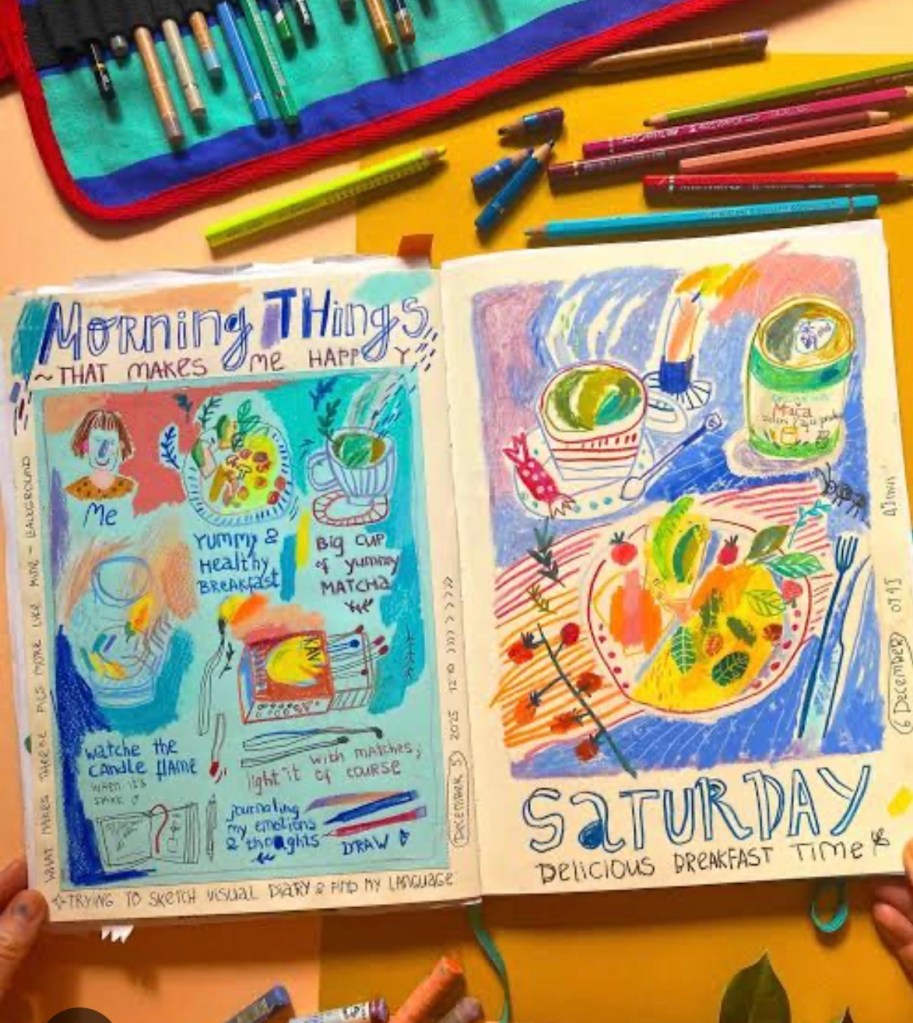 Morning THings
~THAT MAKES ME HAPPY
Me
YUMMY &
HeaLtHy
BREAKfasT
BIG CUP
of yummy
MATCHA
watche the
CANDLE flame
WHEN IT'S
DARK
light it with matches,
of course
journaling
my emotions
& thoughts
DRAW
WHAT MAKES THERAE PILES MORE LIKE MINE - BACKGROUND
DECEMBER 5 2025
☆TRYING TO SKETCH VISUAL DIARY & FIND MY LANGUAGE
Mača
zelen čaj
SATURDAY
DELICIOUS BREAKFAST TIME
6 DECEMBER